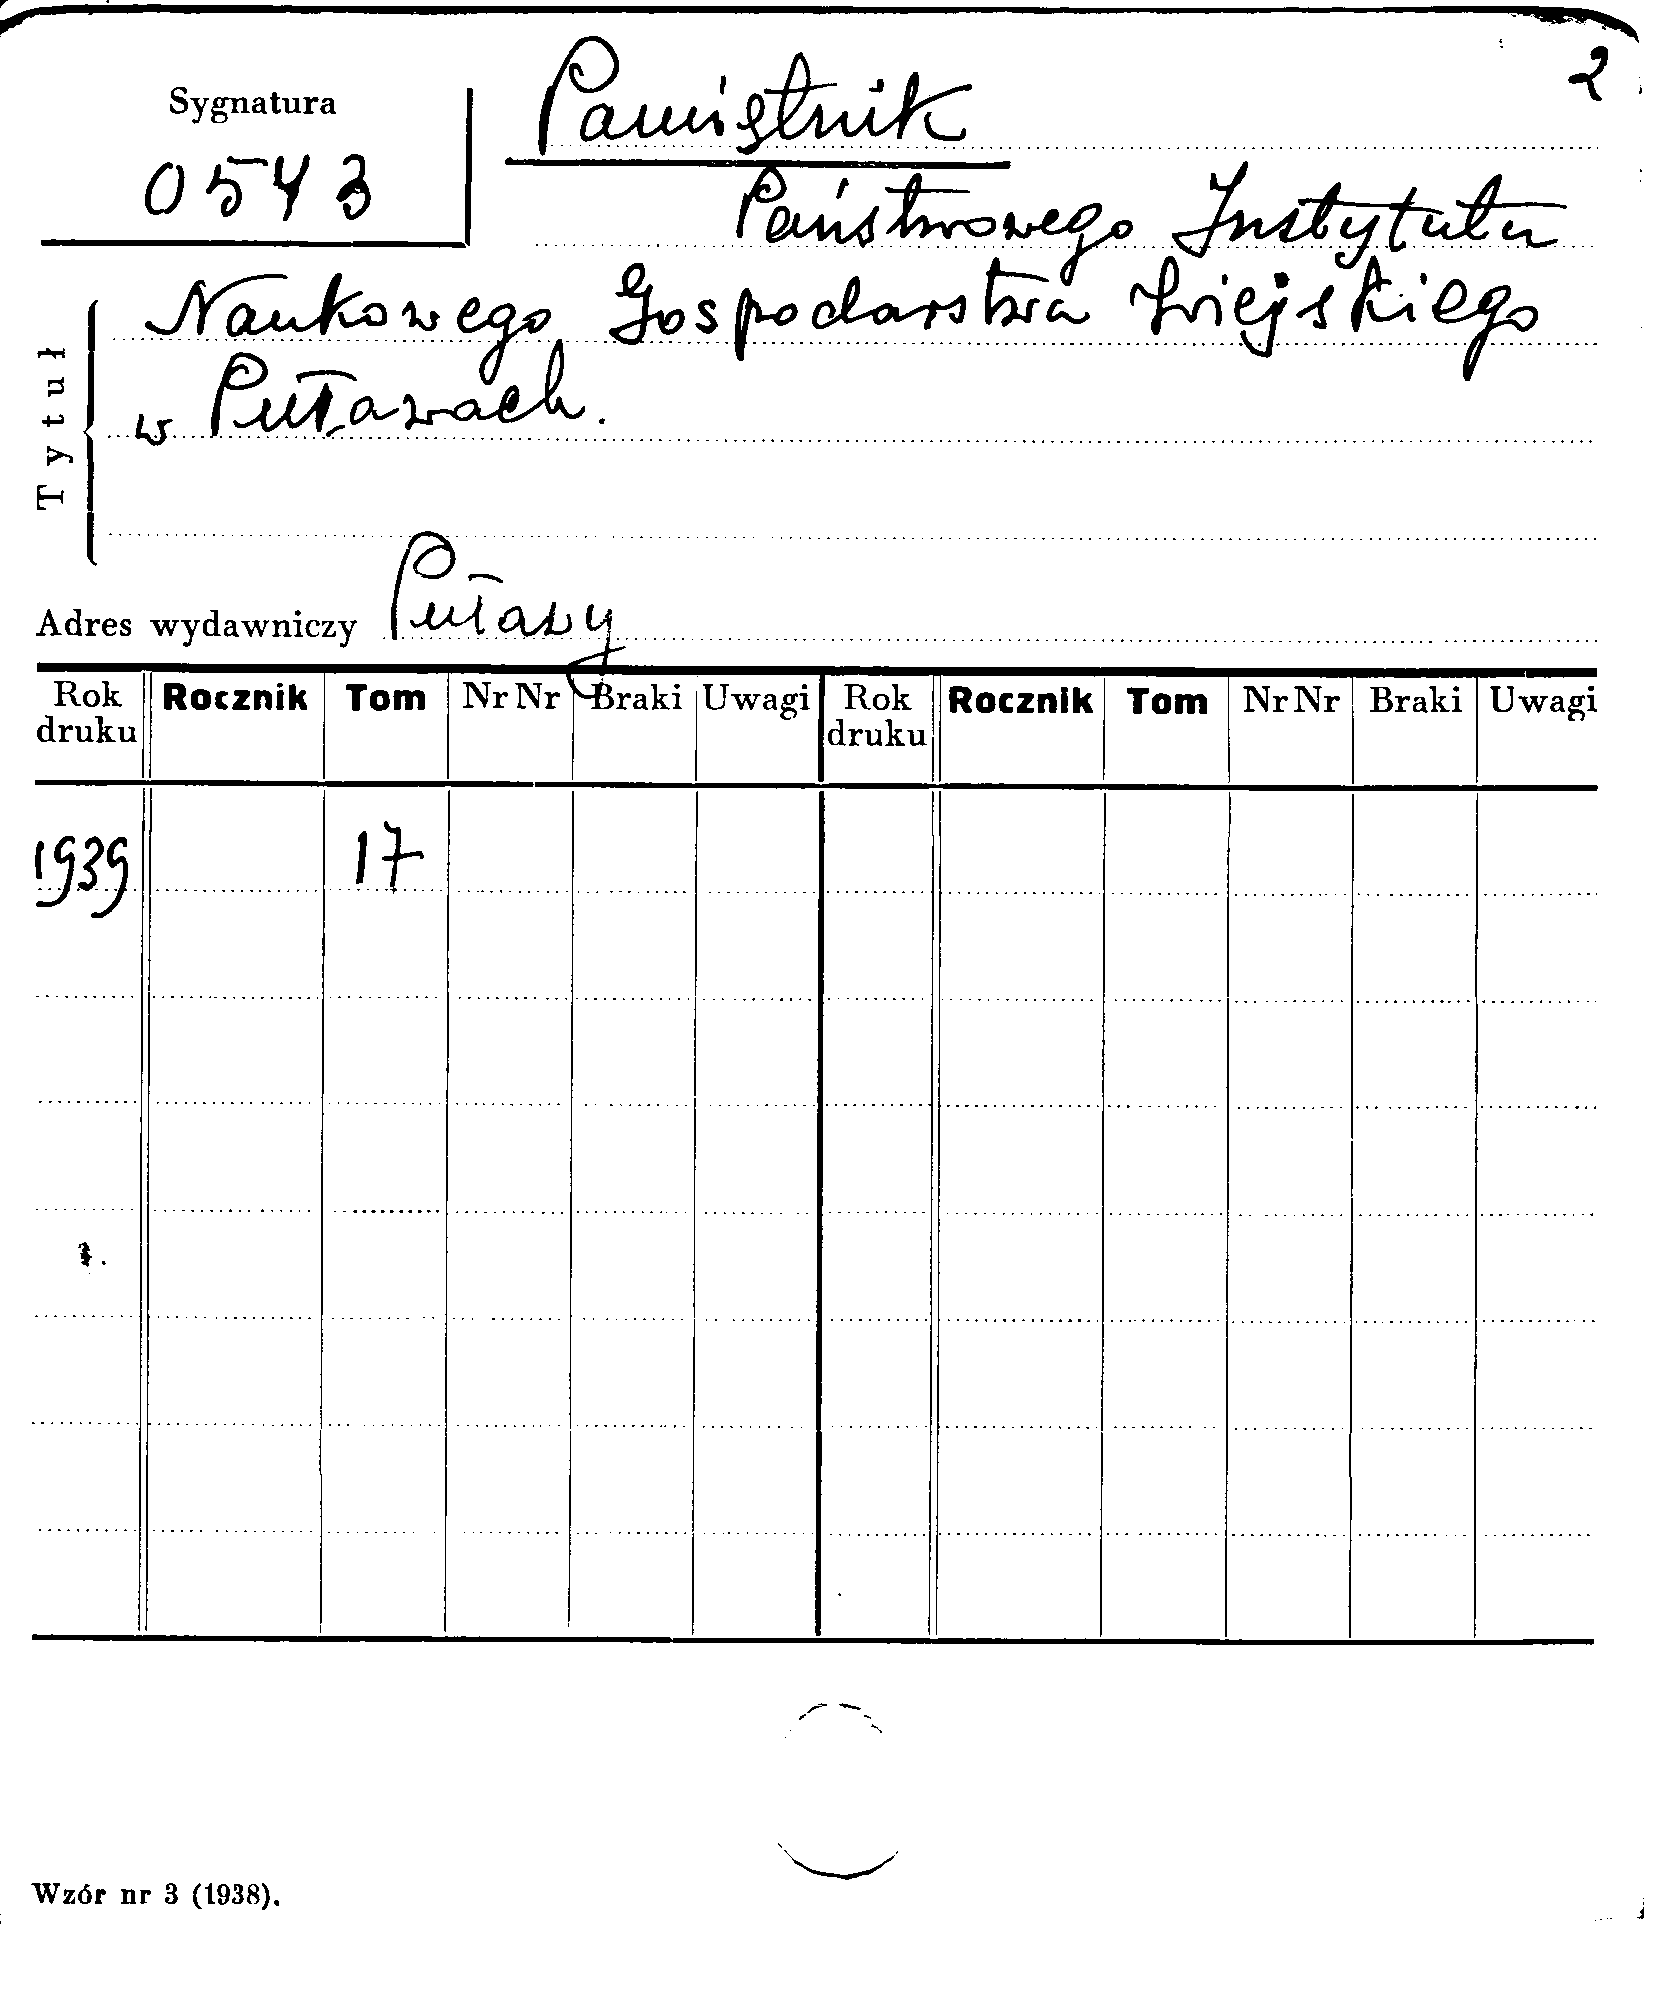 2
Sygnatura
0543
Pamiętnik
Państwowego Instytutu
Naukowego Gospodarstwa Wiejskiego
w Puławach.
Tytuł
Adres wydawniczy Puławy
Rok druku Rocznik Tom Nr Nr Braki Uwagi Rok druku Rocznik Tom Nr Nr Braki Uwagi
1939 17
Wzór nr 3 (1938).